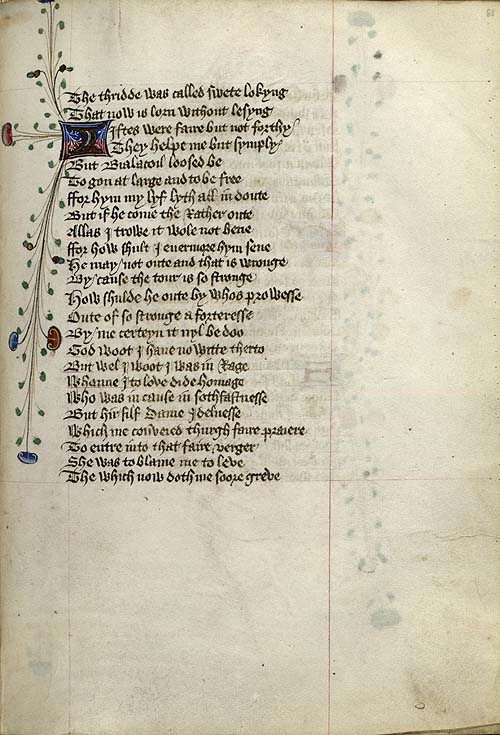 The thridde was called swete lokyng
That now is lorn without lesyng
Yiftes were faire but not forthy
They helpe me but symply
But Bialacoil loosed be
To gon at large and to be free
ffor hym my lyf lyth all in doute
But if he come the Rather oute
Allas I trowe it wole not bene
ffor how shult I euermore hym sene
He may not oute and that is wronge
By cause the tour is so stronge
How shulde he oute by whos prowesse
Oute of so stronge a forteresse
By me certeyn it nyl be doo
God woot I haue no witte therto
But wel I woot I was in Rage
Whanne I to loue dide homage
Who was in cause in sothfastnesse
But hir silf Dame Idelnesse
Which me conueied thurgh faire praiere
To entre into that faire verger
She was to blame me to leve
The which now doth me soore greve